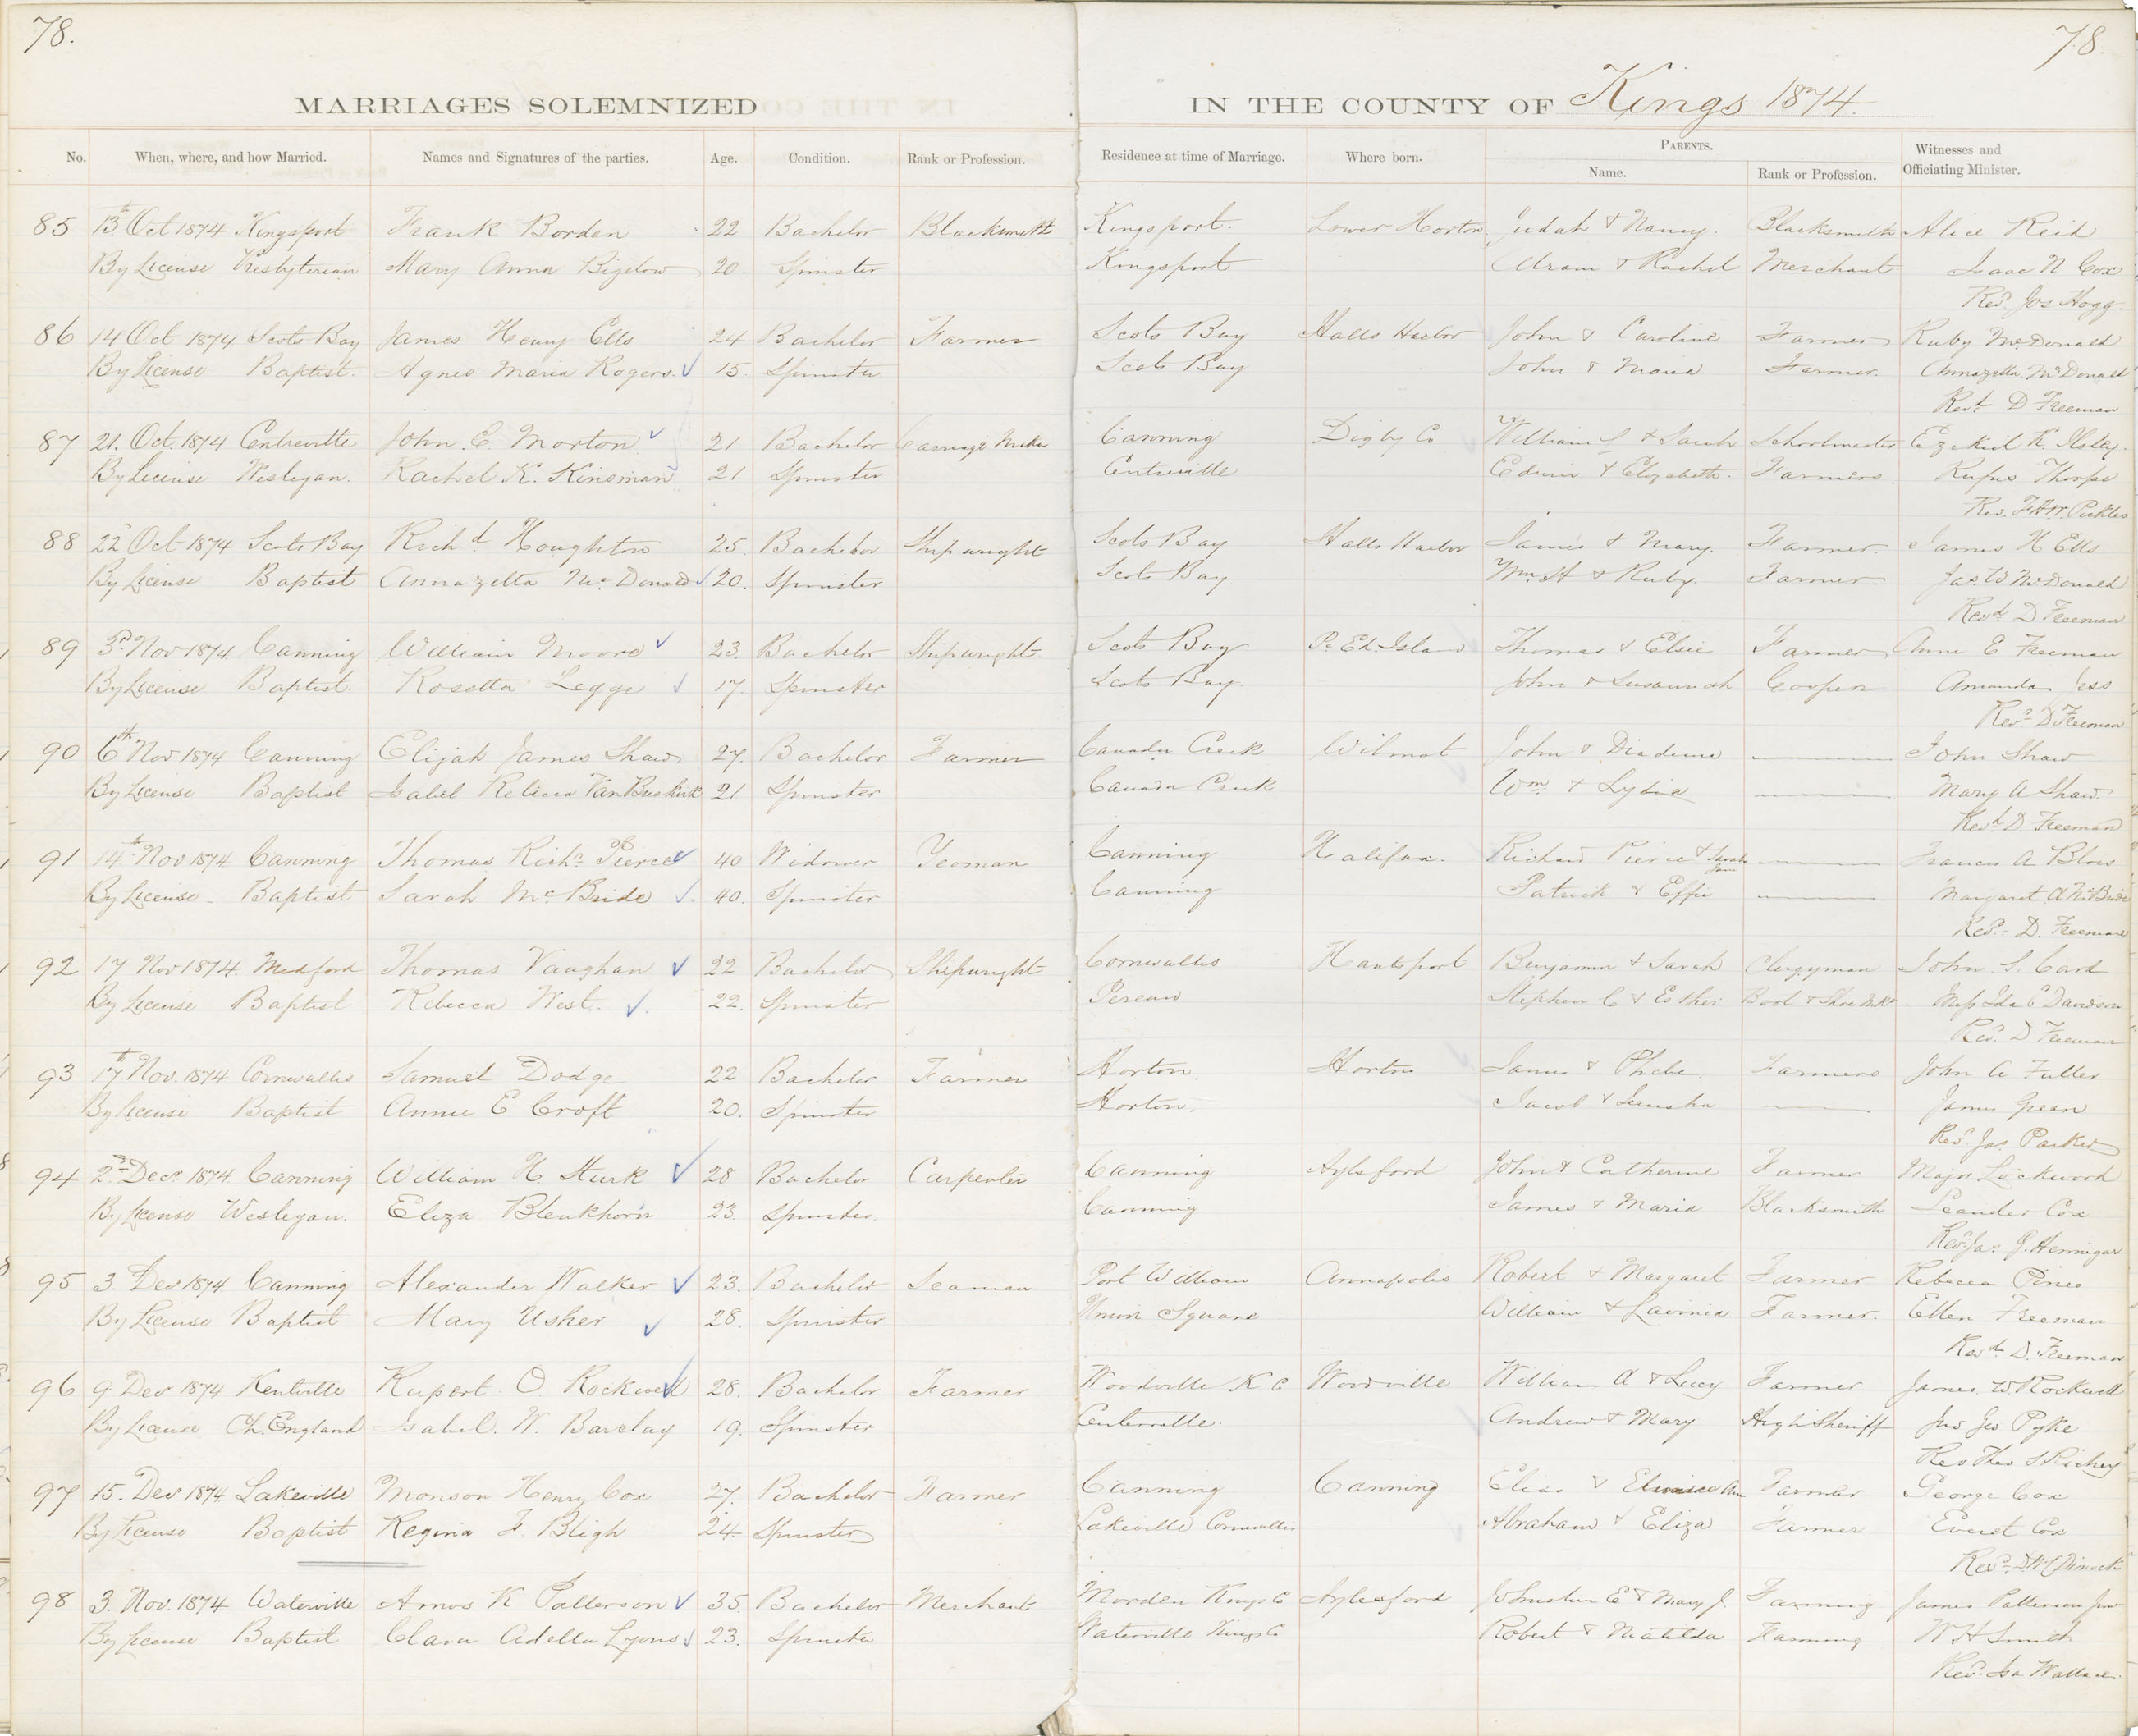 78.
78.
MARRIAGES SOLEMNIZED
IN THE COUNTY OF Kings 1874.
No. When, where, and how Married. Names and Signatures of the parties. Age. Condition. Rank or Profession. Residence at time of Marriage. Where born. PARENTS. Name. Rank or Profession. Witnesses and Officiating Minister.
85 13th Oct 1874 Kingsport Frank Borden 22 Bachelor Blacksmith Kingsport. Lower Horton Judah & Nancy. Blacksmith Alice Reid
By License Presbyterian Mary Anna Bigelow 20. Spinster Kingsport & Rachel Merchant Isaac N Cox
Revd Jos Hogg.
86 14 Oct 1874 Scots Bay James Henry Ells 24 Bachelor Farmer Scots Bay Halls Harbor John & Caroline Farmer Ruby McDonald
By License Baptist. Agnes Maria Rogers. 15. Spinster Scots Bay John & Maria Farmer. Annazetta McDonald
Revd D Freeman
87 21. Oct. 1874 Centreville John. E Morton 21 Bachelor Carriage Maker Canning Digby Co William & Sarah Schoolmaster Ezekiel K. Ilsley.
By License Wesleyan. Rachel K. Kinsman 21. Spinster Centreville Edwin & Elizabeth. Farmers. Rufus Thorpe
Rev. F.H.W. Pickles
88 22 Oct 1874 Scots Bay Richd Houghton 25. Bachelor Shipwright Scots Bay Halls Harbor James & Mary. Farmer. James H Ells
By License Baptist Annazetta McDonald 20. Spinster Scots Bay Wm H & Ruby. Farmer. Jas. W McDonald
Revd D Freeman
89 3rd Nov 1874 Canning William Moore 23 Bachelor Shipwright Scots Bay P. Ed. Island Thomas & Elsie Farmer Anne E Freeman
By License Baptist. Rosetta Legge 17. Spinster Scots Bay. John & Susannah Cooper Amanda Jess
Revd D Freeman
90 6th Nov 1874 Canning Elijah James Shaw 27. Bachelor Farmer Canada Creek Wilmot John & Diadema John Shaw
By License Baptist Isabel Van Buskirk 21 Spinster Canada Creek Wm & Lydia Mary A Shaw.
Revd D. Freeman
91 14th Nov 1874 Canning Thomas Richd Pierce 40 Widower Yeoman Canning Halifax. Richard Pierce & Sarah Jane Francis A Blois
By License Baptist Sarah McBride 40. Spinster Canning Patrick & Effie Margaret A McBride
Revd D. Freeman
92 17 Nov 1874. Medford Thomas Vaughan 22 Bachelor Shipwright Cornwallis Hantsport Benjamin & Sarah Clergyman John. S. Card
By License Baptist Rebecca West. 22. Spinster Pereau Stephen C & Esther Boot & Shoe Mkr Miss Ida E Davidson
Revd. D Freeman
93 17th Nov. 1874 Cornwallis Samuel Dodge 22 Bachelor Farmer Horton. Horton James & Phebe. Farmers John A Fuller
By License Baptist Annie E Croft 20. Spinster Horton. Jacob & Jerusha James Grean
Revd. Jas. Parker
94 2nd Decr. 1874. Canning William H. Sturk 28 Bachelor Carpenter Canning Aylsford John & Catherine Farmer Major Lockwood
By License Wesleyan. Eliza Blenkhorn 23. Spinster. Canning James & Maria Blacksmith Leander Cox
Revd Jas. J. Hennigar
95 3. Decr 1874 Canning Alexander Walker 23. Bachelor Seaman Port William Annapolis Robert & Margaret Farmer Rebecca Pineo
By License Baptist Mary Usher 28. Spinster Union Square William & Lavinia Farmer. Ellen Freeman
Revd D. Freeman
96 9 Decr 1874 Kentville Rupert. O. Rockwell 28. Bachelor Farmer Woodville K C Woodville William A & Lucy Farmer James. W. Rockwell
By License Ch. England Isabel. W. Barclay 19. Spinster Centerville. Andrew & Mary High Sheriff Jno Geo Pyke
Rev Thos S Richey
97 15. Decr 1874 Lakeville Monson Henry Cox 27. Bachelor Farmer Canning Canning Elias & Ann Farmer George Cox
By License Baptist Regina F. Bligh 24. Spinster Lakeville Cornwallis Abraham & Eliza Farmer Everet Cox
Revd. Dimock
98 3. Nov. 1874 Waterville Amos K Patterson 35. Bachelor Merchant Morden Kings C Aylesford Johnston E & Mary J. Farming James Patterson Junr
By License Baptist Clara Adella Lyons 23. Spinster Waterville Kings C Robert & Matilda Farming W H Smith
Revd. Isa Wallace.